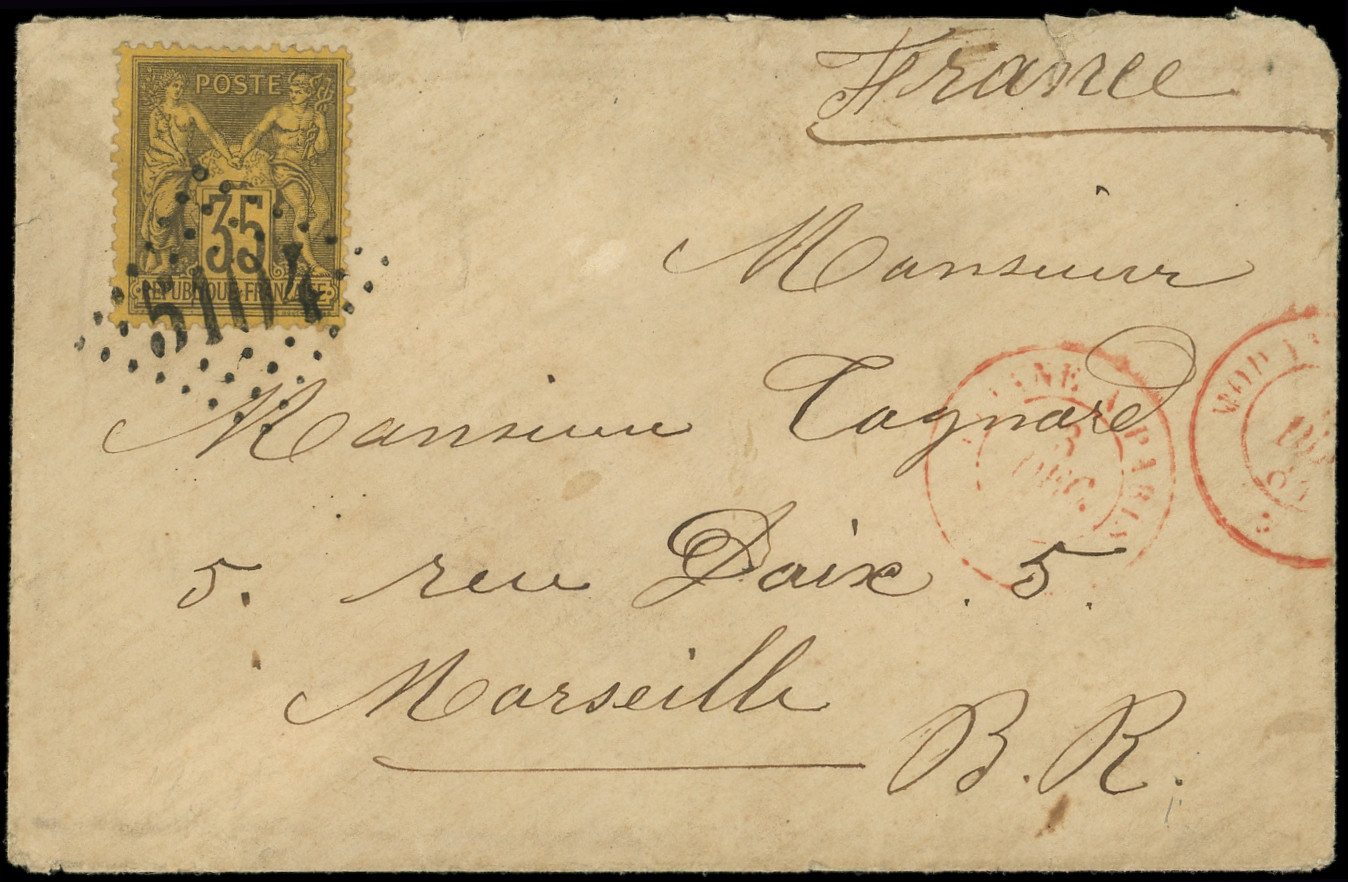 POSTE
35
REPUBLIQUE FRANÇAISE
5104
France
Monsieur
Monsieur Cognard
5. rue Paix. 5.
Marseille
B. R.
PARIS
3
DEC.